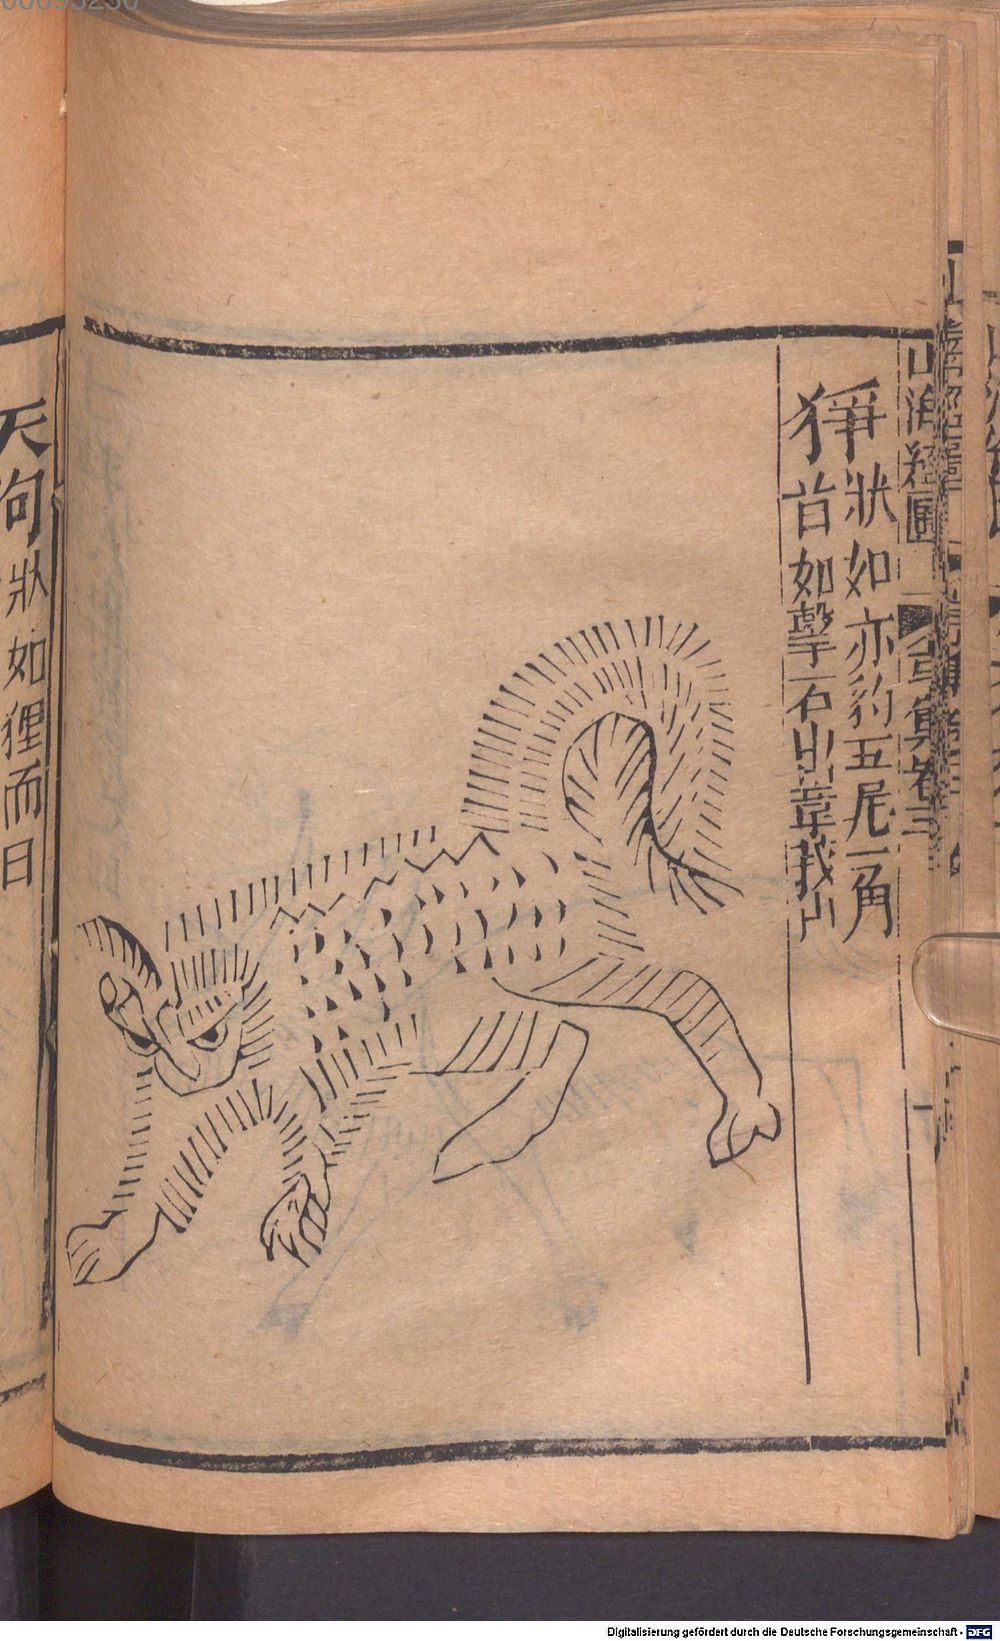 山海經圖
畜集卷三
猙
狀如亦豹五尾一角
首如擊石出章莪山
天狗
狀如狸而曰
00093250
Digitalisierung gefördert durch die Deutsche Forschungsgemeinschaft - DFG